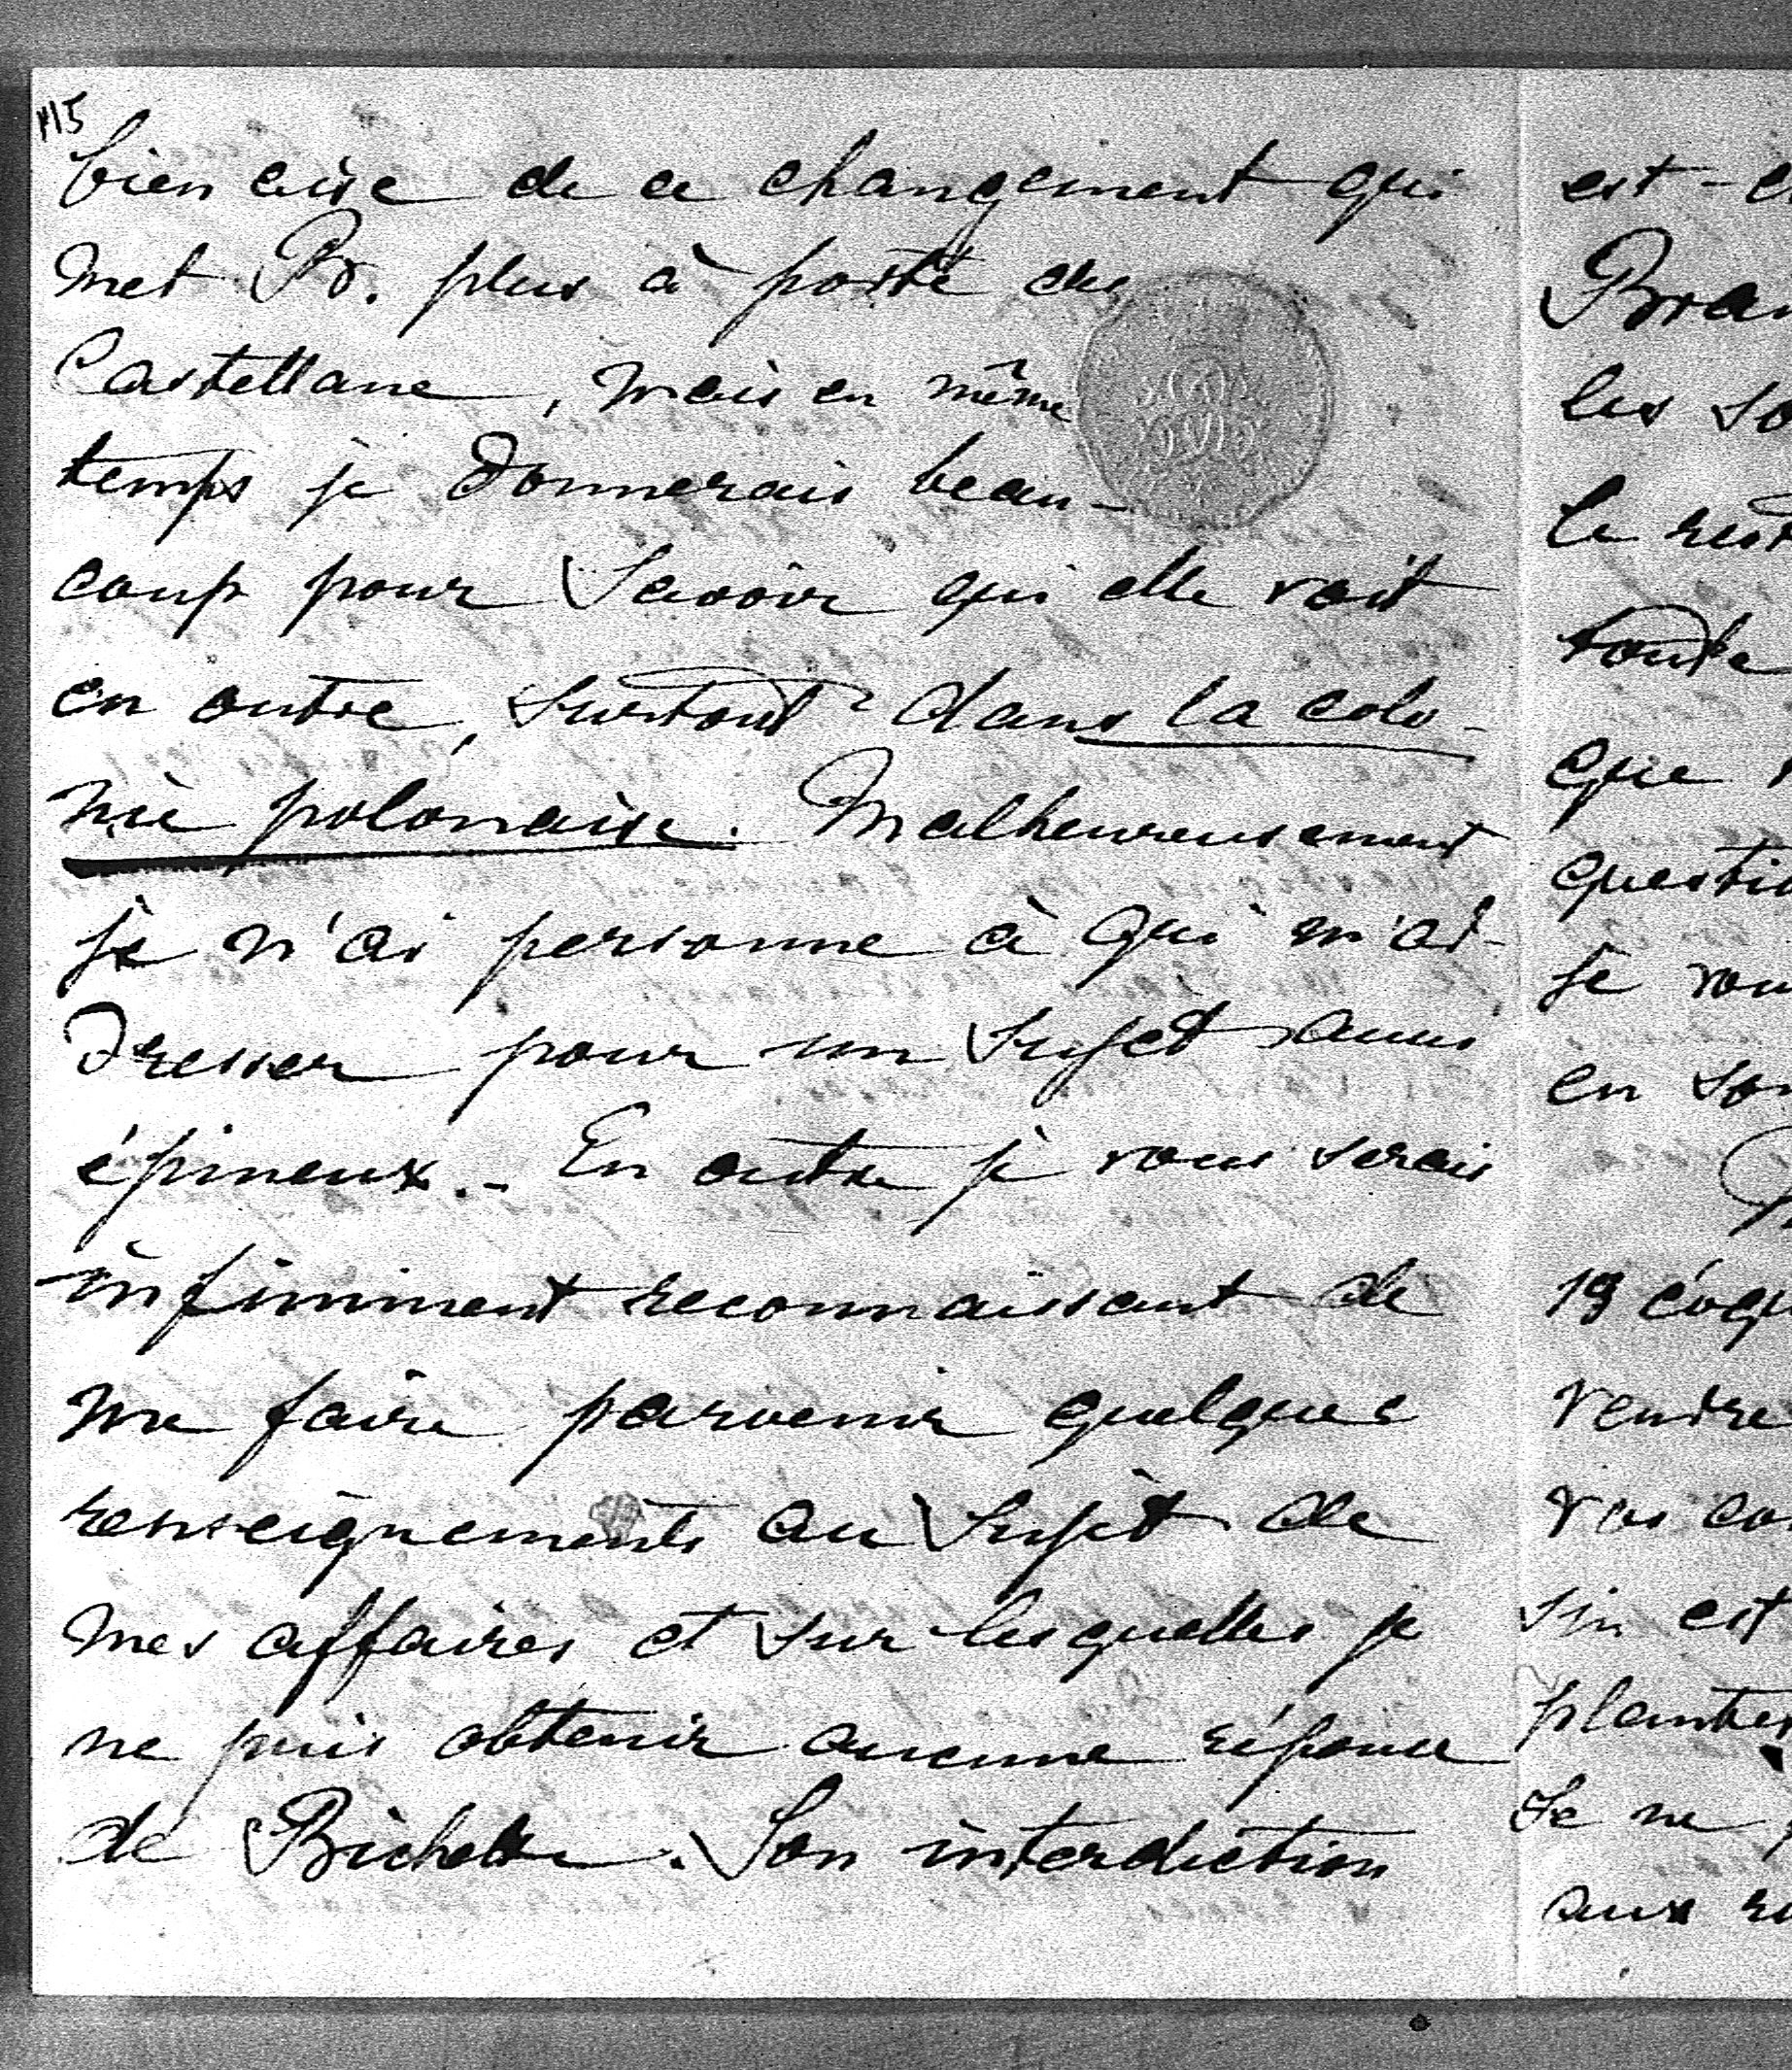 115
bien aise de ce changement qui
met B. plus à porté de
Castellane, mais en même
temps je donnerais beau-
coup pour savoir qui elle voit
en outre, surtout dans la colo-
nie polonaise. Malheureusement
je n'ai personne à qui m'ad-
dresser pour un sujet aussi
épineux. - En outre je vous serais
infiniment reconnaissant de
me faire parvenir quelques
renseignements au sujet de
mes affaires et sur lesquelles je
ne puis obtenir aucune réponse
de Bichette. Son interdiction
est-c
Bran
les so
le rest
toute
que
questio
je vou
en son
19 évoqu
vendre
vos co
sin est
plantes
Je ne
aux